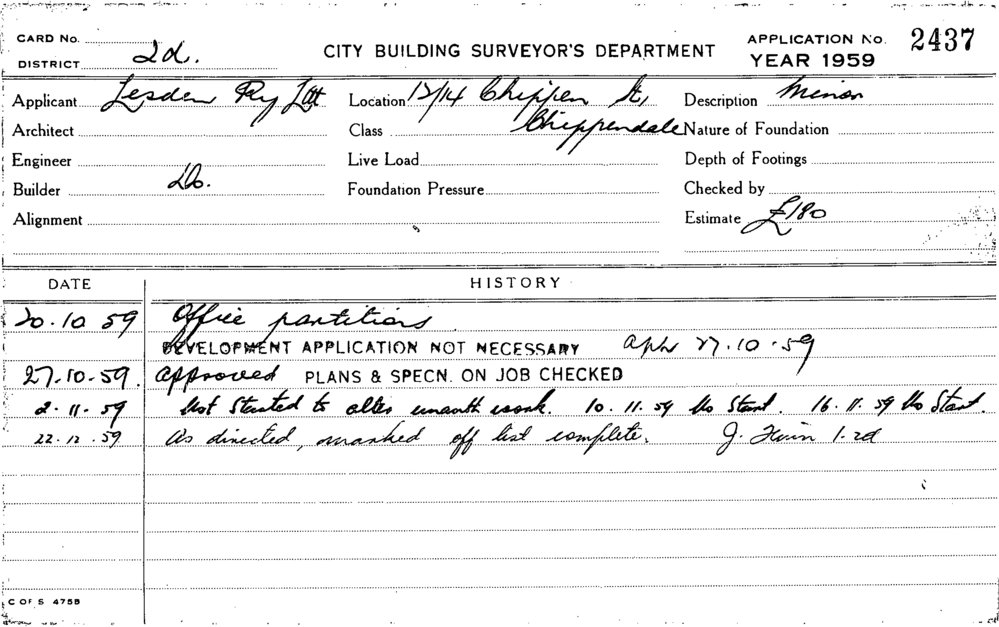 CARD No.
CITY BUILDING SURVEYOR'S DEPARTMENT
APPLICATION No. 2437
DISTRICT 2d.
YEAR 1959
Applicant Lesden Pty Ltd
Location 12/14 Chippen St,
Description Minor
Architect
Class Chippendale
Nature of Foundation
Engineer
Live Load
Depth of Footings
Builder Do.
Foundation Pressure
Checked by
Alignment
Estimate £180
DATE HISTORY
20.10 59 Office partitions
DEVELOPMENT APPLICATION NOT NECESSARY 27.10.59
27.10.59. approved PLANS & SPECN. ON JOB CHECKED
2.11.59 Not Started to alter work. 10.11.59 No Start. 16.11.59 No Start.
22.12.59 As directed, marked off list complete. J.
C OF S 475B